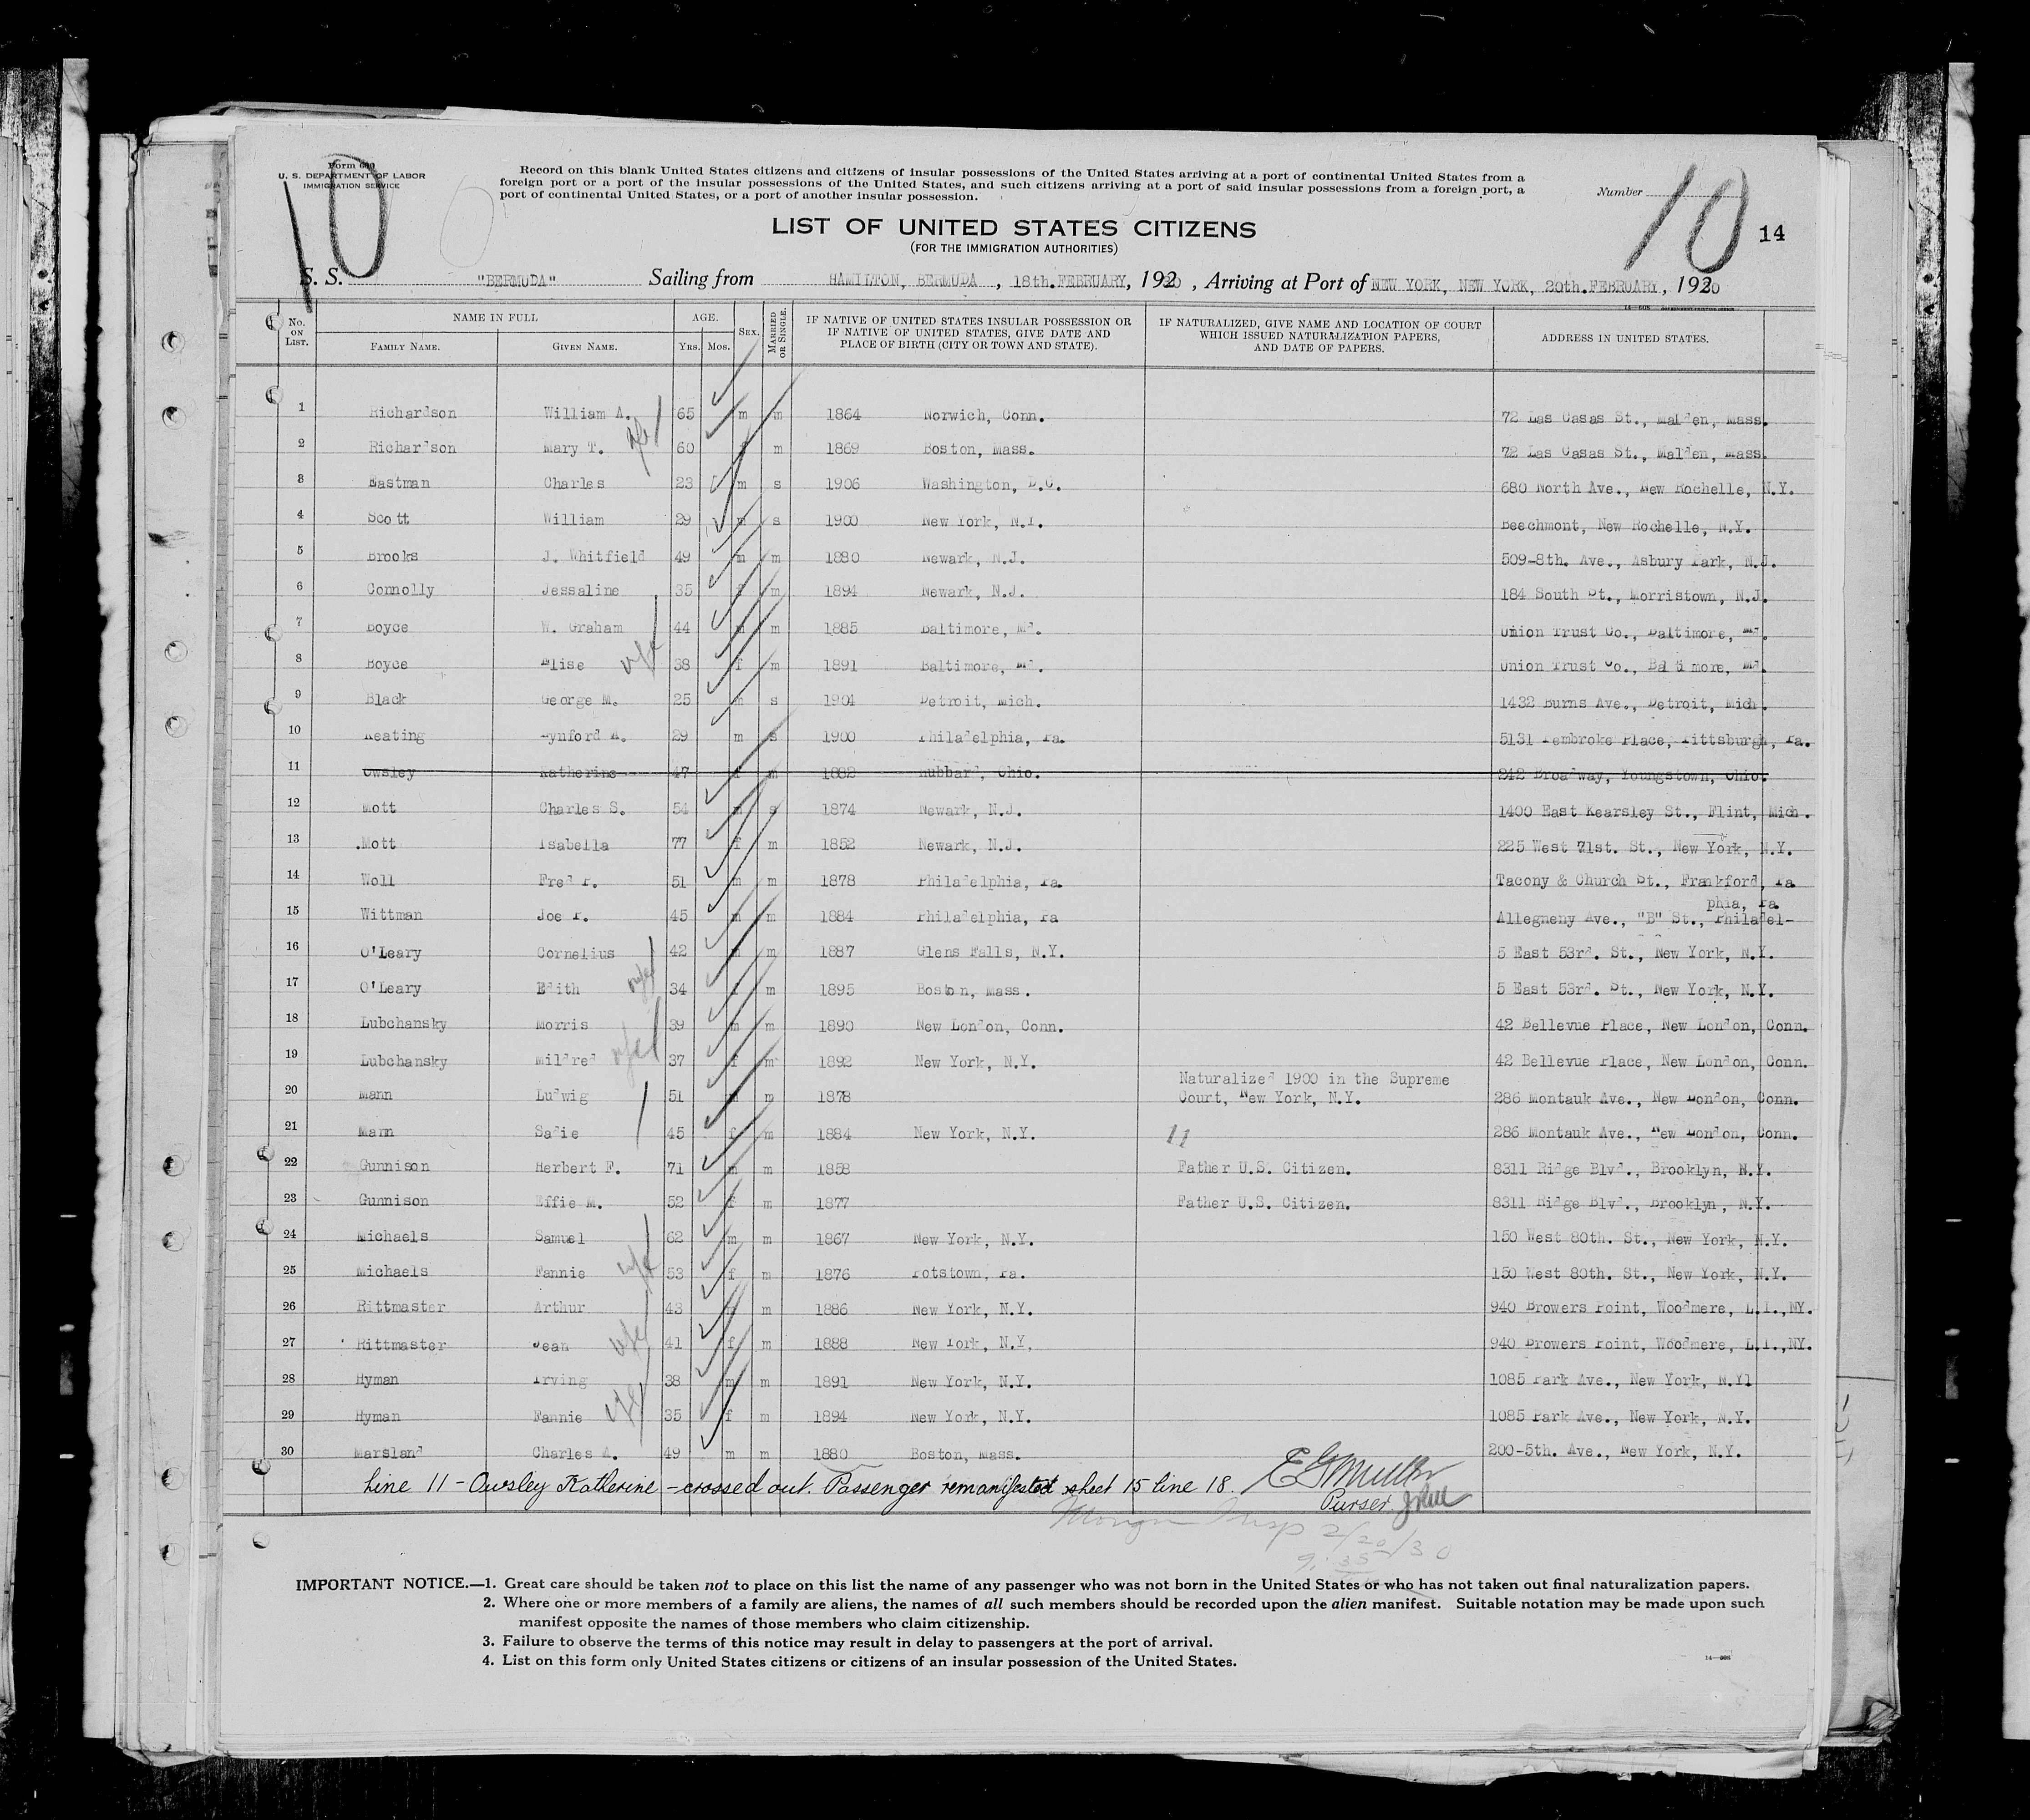 Form 630
U. S. DEPARTMENT OF LABOR
IMMIGRATION SERVICE
10
Record on this blank United States citizens and citizens of insular possessions of the United States arriving at a port of continental United States from a
foreign port or a port of the insular possessions of the United States, and such citizens arriving at a port of said insular possessions from a foreign port, a
port of continental United States, or a port of another insular possession.
Number 10
14
LIST OF UNITED STATES CITIZENS
(FOR THE IMMIGRATION AUTHORITIES)
S. S. "BERMUDA" Sailing from HAMILTON, BERMUDA, 18th. FEBRUARY, 1930, Arriving at Port of NEW YORK, NEW YORK, 20th. FEBRUARY, 1930
No. ON LIST. NAME IN FULL FAMILY NAME. GIVEN NAME. AGE. YRS. MOS. SEX. MARRIED OR SINGLE. IF NATIVE OF UNITED STATES INSULAR POSSESSION OR IF NATIVE OF UNITED STATES, GIVE DATE AND PLACE OF BIRTH (CITY OR TOWN AND STATE). IF NATURALIZED, GIVE NAME AND LOCATION OF COURT WHICH ISSUED NATURALIZATION PAPERS, AND DATE OF PAPERS. ADDRESS IN UNITED STATES.
1 Richardson William A. 65 m m 1864 Norwich, Conn. 72 Las Casas St., Malden, Mass.
2 Richardson Mary T. wife 60 f m 1869 Boston, Mass. 72 Las Casas St., Malden, Mass.
3 Eastman Charles 23 m s 1906 Washington, D.C. 680 North Ave., New Rochelle, N.Y.
4 Scott William 29 m s 1900 New York, N.Y. Beechmont, New Rochelle, N.Y.
5 Brooks J. Whitfield 49 m m 1880 Newark, N.J. 509-8th. Ave., Asbury Park, N.J.
6 Connolly Jessaline 35 f m 1894 Newark, N.J. 184 South St., Morristown, N.J.
7 Boyce W. Graham 44 m m 1885 Baltimore, Md. Union Trust Co., Baltimore, Md.
8 Boyce Elise wife 38 f m 1891 Baltimore, Md. Union Trust Co., Baltimore, Md.
9 Black George M. 25 m s 1904 Detroit, Mich. 1432 Burns Ave., Detroit, Mich.
10 Keating 29 m s 1900 Philadelphia, Pa. 5131 Pembroke Place, Pittsburgh, Pa.
11 Owsley Katherine 47 f m 1882 Hubbard, Ohio. 242 Broadway, Youngstown, Ohio.
12 Mott Charles S. 54 m s 1874 Newark, N.J. 1400 East Kearsley St., Flint, Mich.
13 Mott Isabella 77 f m 1852 Newark, N.J. 225 West 71st. St., New York, N.Y.
14 Woll Fred P. 51 m m 1878 Philadelphia, Pa. Tacony & Church St., Frankford, Pa
15 Wittman Joe P. 45 m m 1884 Philadelphia, Pa Allegheny Ave., "B" St., Philadel-
phia, Pa
16 O'Leary Cornelius 42 m m 1887 Glens Falls, N.Y. 5 East 53rd. St., New York, N.Y.
17 O'Leary Edith wife 34 f m 1895 Boston, Mass. 5 East 53rd. St., New York, N.Y.
18 Lubchansky Morris 39 m m 1890 New London, Conn. 42 Bellevue Place, New London, Conn.
19 Lubchansky Mildred wife 37 f m 1892 New York, N.Y. 42 Bellevue Place, New London, Conn.
20 Mann Ludwig 51 m m 1878 Naturalized 1900 in the Supreme
Court, New York, N.Y. 286 Montauk Ave., New London, Conn.
21 Mann Sadie 45 f m 1884 New York, N.Y. 11 286 Montauk Ave., New London, Conn.
22 Gunnison Herbert F. 71 m m 1858 Father U.S. Citizen. 8311 Ridge Blvd., Brooklyn, N.Y.
23 Gunnison Effie M. 52 f m 1877 Father U.S. Citizen. 8311 Ridge Blvd., Brooklyn, N.Y.
24 Michaels Samuel 62 m m 1867 New York, N.Y. 150 West 80th. St., New York, N.Y.
25 Michaels Fannie wife 53 f m 1876 Potstown, Pa. 150 West 80th. St., New York, N.Y.
26 Rittmaster Arthur 43 m m 1886 New York, N.Y. 940 Browers Point, Woodmere, L.I.,NY.
27 Rittmaster Jean wife 41 f m 1888 New York, N.Y. 940 Browers Point, Woodmere, L.I.,NY.
28 Hyman Irving 38 m m 1891 New York, N.Y. 1085 Park Ave., New York, N.Yl
29 Hyman Fannie wife 35 f m 1894 New York, N.Y. 1085 Park Ave., New York, N.Y.
30 Marsland Charles A. 49 m m 1880 Boston, Mass. 200-5th. Ave., New York, N.Y.
Line 11 - Owsley Katherine - crossed out. Passenger remanifested sheet 15 line 18.
Purser
Insp 2/20/30
9:35
IMPORTANT NOTICE.—1. Great care should be taken not to place on this list the name of any passenger who was not born in the United States or who has not taken out final naturalization papers.
2. Where one or more members of a family are aliens, the names of all such members should be recorded upon the alien manifest. Suitable notation may be made upon such
manifest opposite the names of those members who claim citizenship.
3. Failure to observe the terms of this notice may result in delay to passengers at the port of arrival.
4. List on this form only United States citizens or citizens of an insular possession of the United States.